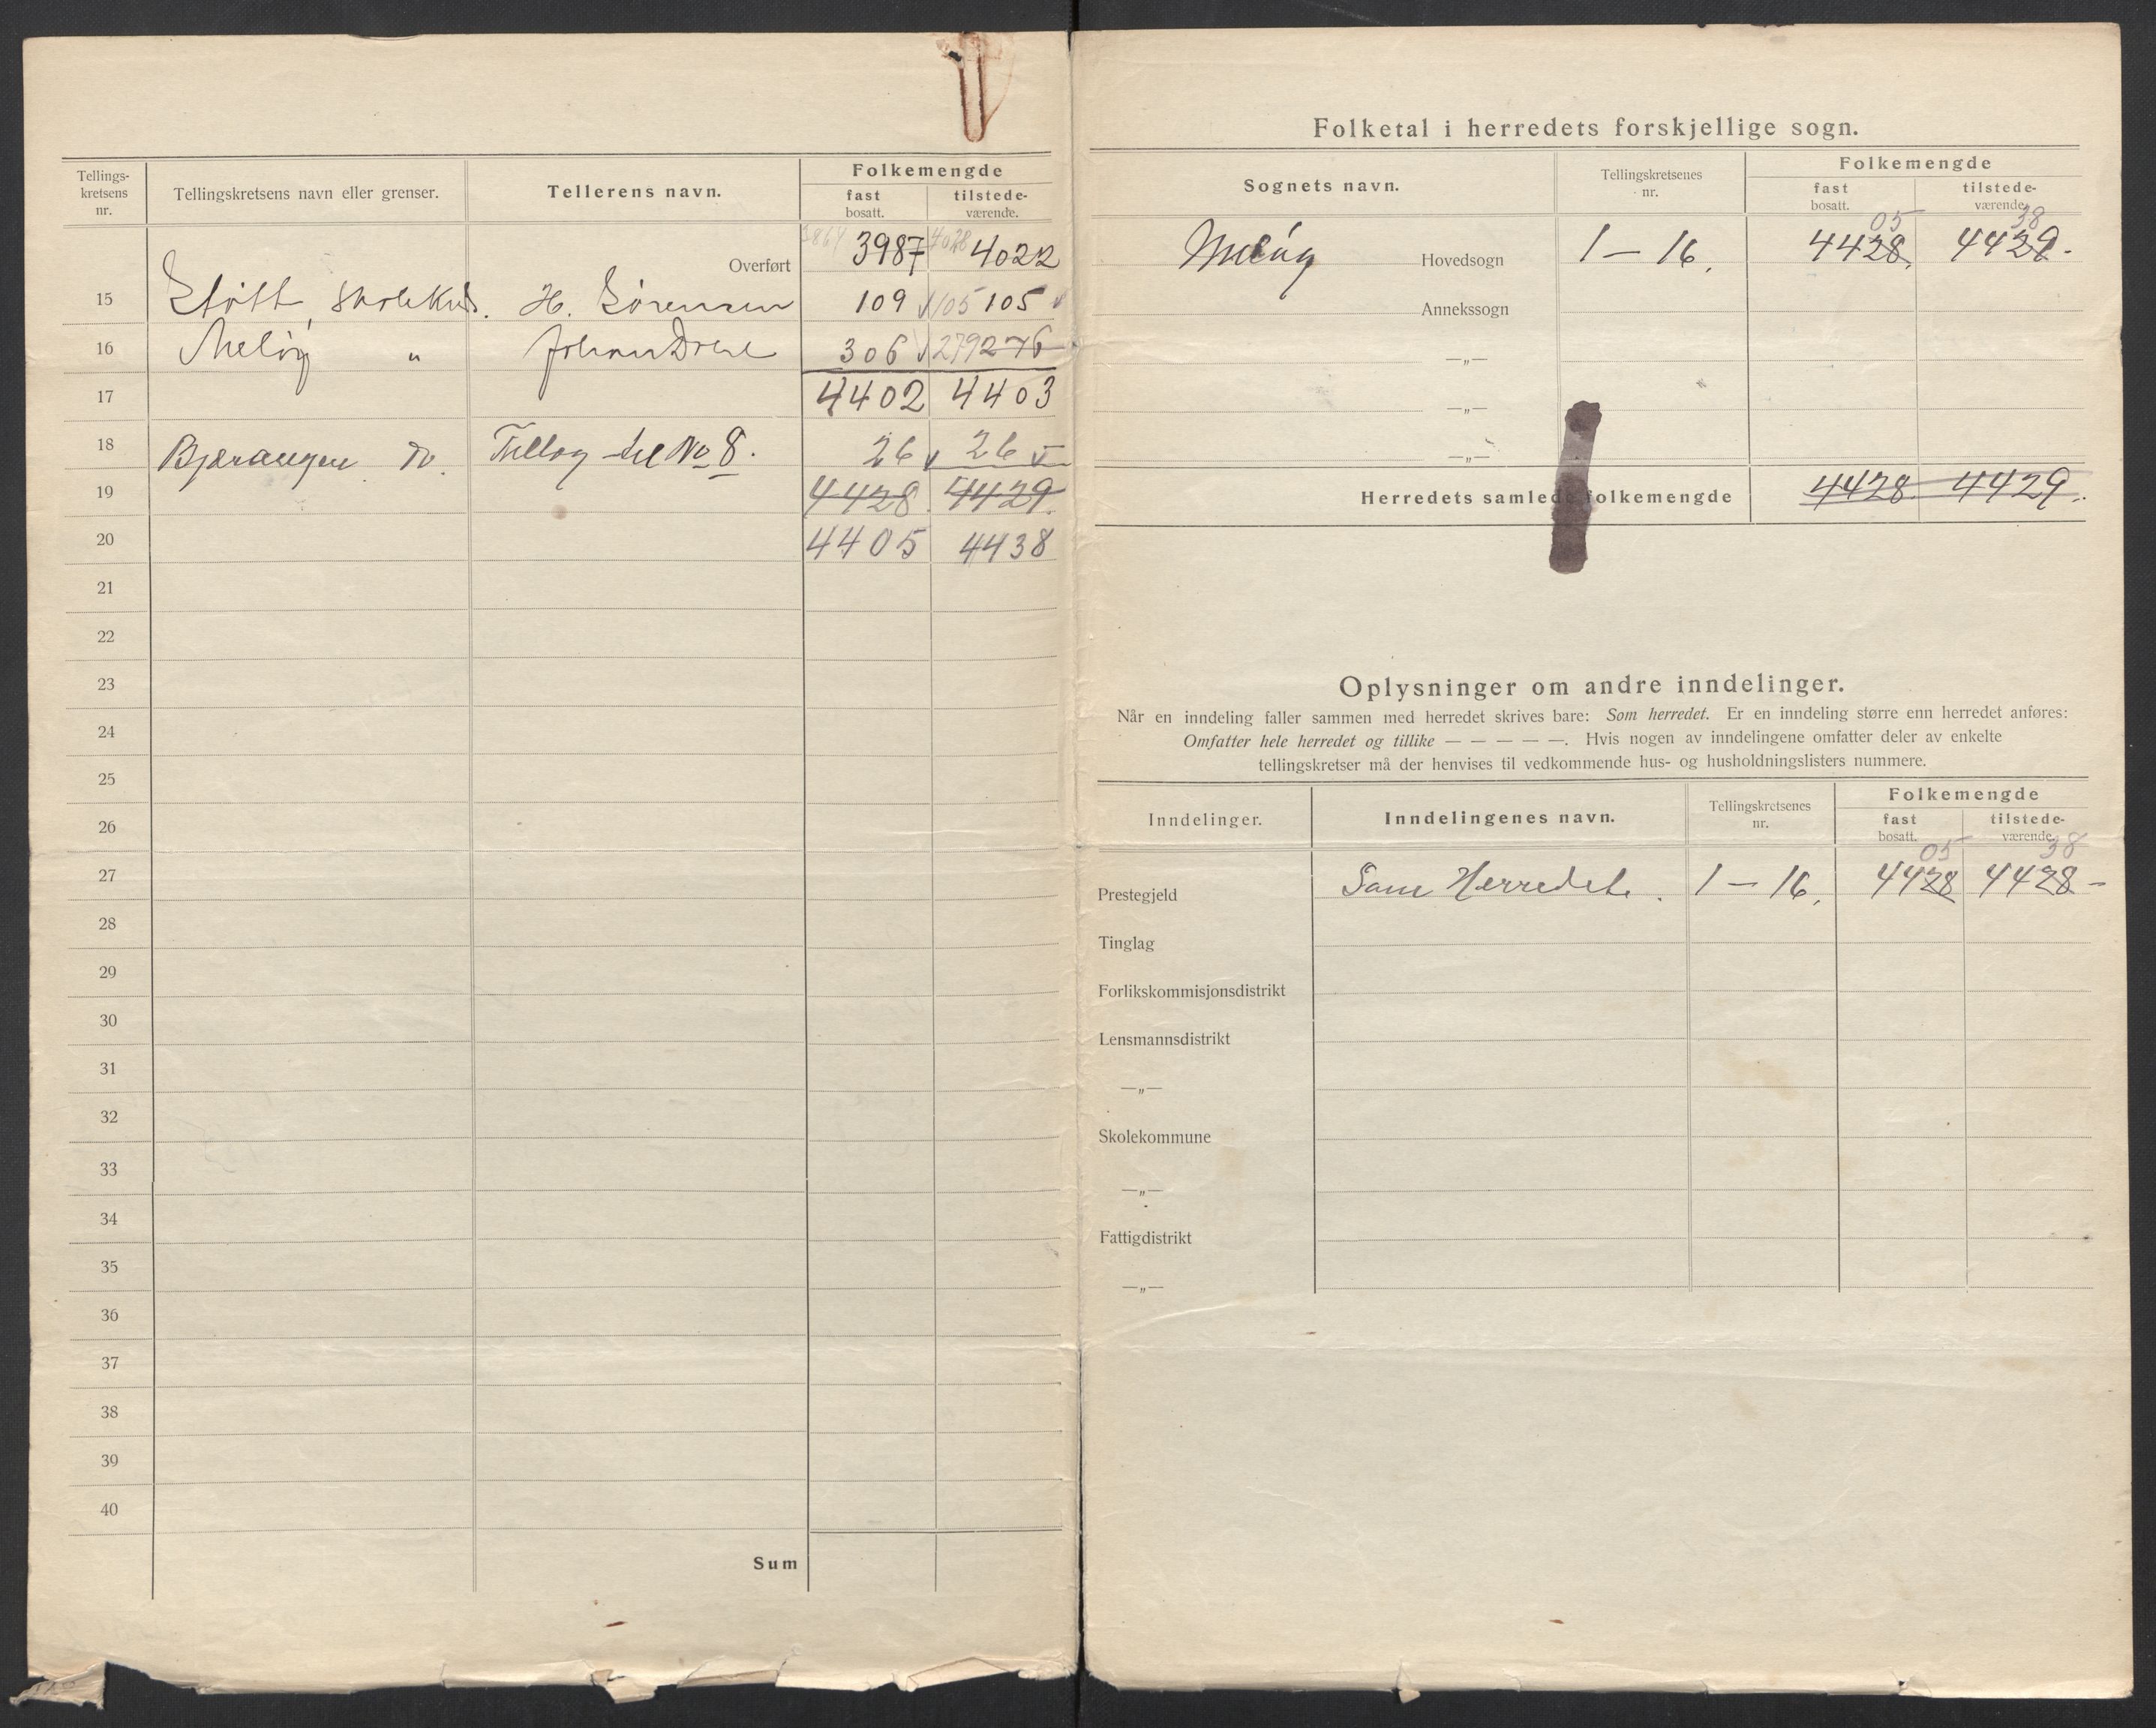 Tellings-
kretsens
nr.
Tellingskretsens navn eller grenser.
Tellerens navn.
Folkemengde
fast
bosatt.
tilstede-
værende.
Overført 3987 4028 4022
15 Støtt, Skolekreds. H. Sørensen 109 105 105
16 Meløy " Johan 306 279 276
17 4402 4403
18 Bjærangen do. Tillæg til No 8. 26 26
19 4428. 4429.
20 4405 4438
21
22
23
24
25
26
27
28
29
30
31
32
33
34
35
36
37
38
39
40
Sum
Folketal i herredets forskjellige sogn.
Sognets navn.
Tellingskretsenes
nr.
Folkemengde
fast
bosatt.
tilstede-
værende.
05 38
Meløy Hovedsogn 1 — 16. 4428. 4429.
Annekssogn
—„—
—„—
—„—
Herredets samlede folkemengde 4428. 4429.
Oplysninger om andre inndelinger.
Når en inndeling faller sammen med herredet skrives bare: Som herredet. Er en inndeling større enn herredet anføres:
Omfatter hele herredet og tillike — — — — —. Hvis nogen av inndelingene omfatter deler av enkelte
tellingskretser må der henvises til vedkommende hus- og husholdningslisters nummere.
Inndelinger.
Inndelingenes navn.
Tellingskretsenes
nr.
Folkemengde
fast
bosatt.
tilstede-
værende.
05 38
Prestegjeld Som Herredet. 1 — 16. 4428 4428 -
Tinglag
Forlikskommisjonsdistrikt
Lensmannsdistrikt
—„—
Skolekommune
—„—
Fattigdistrikt
—„—